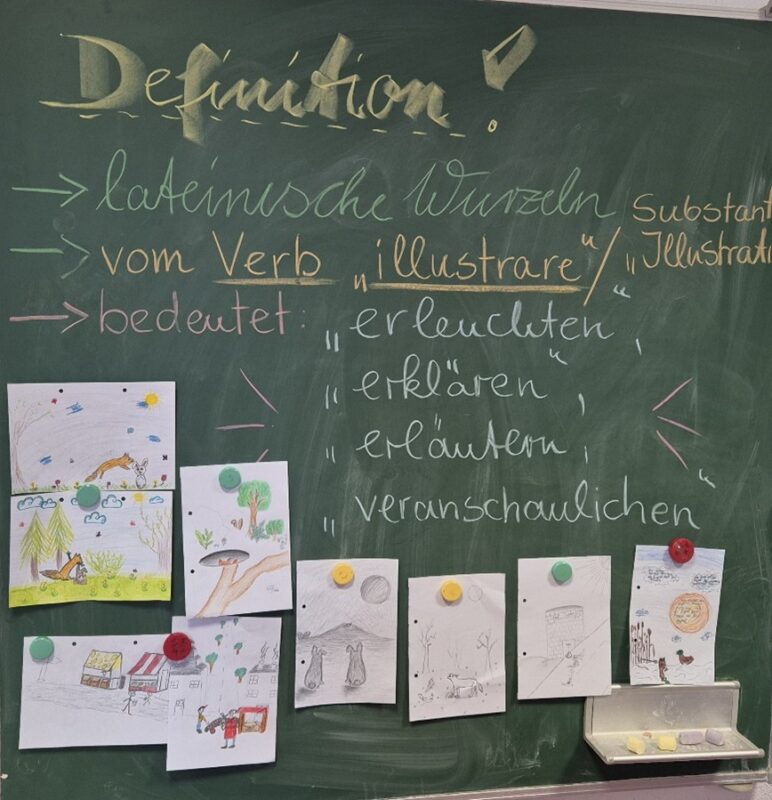 Definition!
→ lateinische Wurzeln
→ vom Verb „illustrare“ / Substant
„Illustrati
→ bedeutet: „erleuchten“,
„erklären“,
„erläutern,
„veranschaulichen“